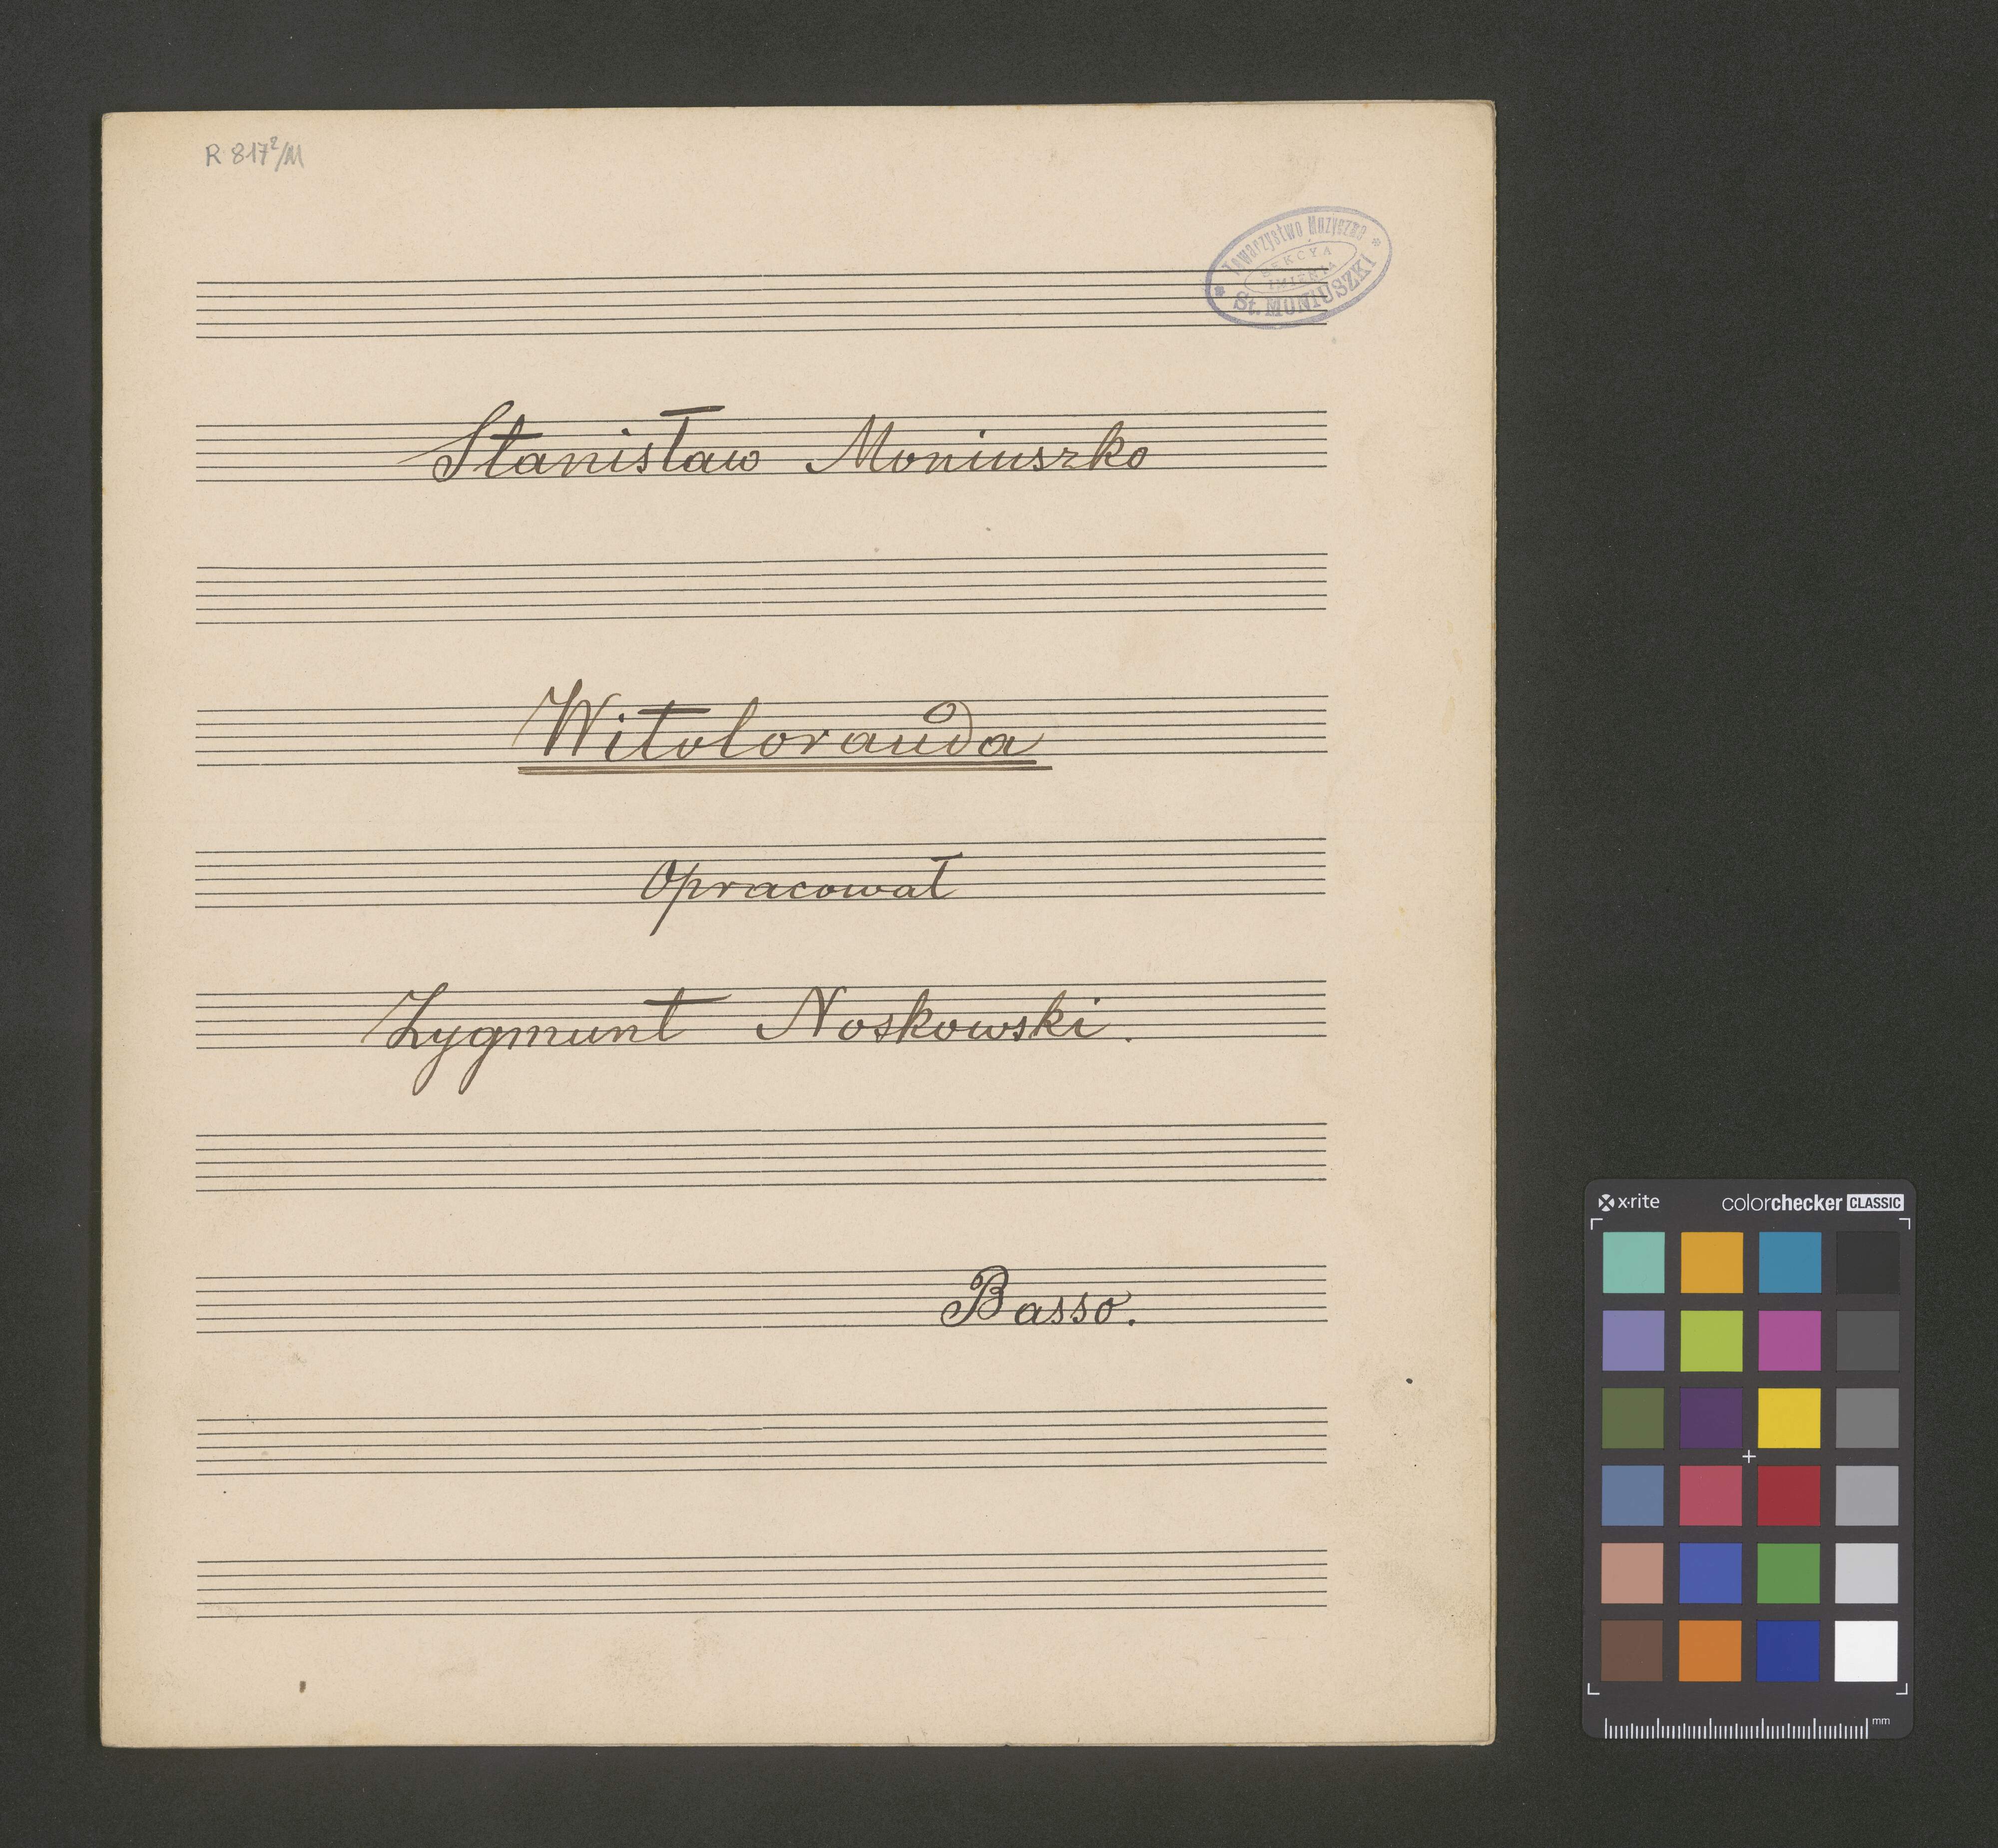 R 817²/M
Towarzystwo Muzyczne
SEKCYA
IMIENIA
St. MONIUSZKI
Stanisław Moniuszko
Witolorauda
Opracował
Zygmunt Noskowski.
Basso.
x-rite colorchecker CLASSIC
mm